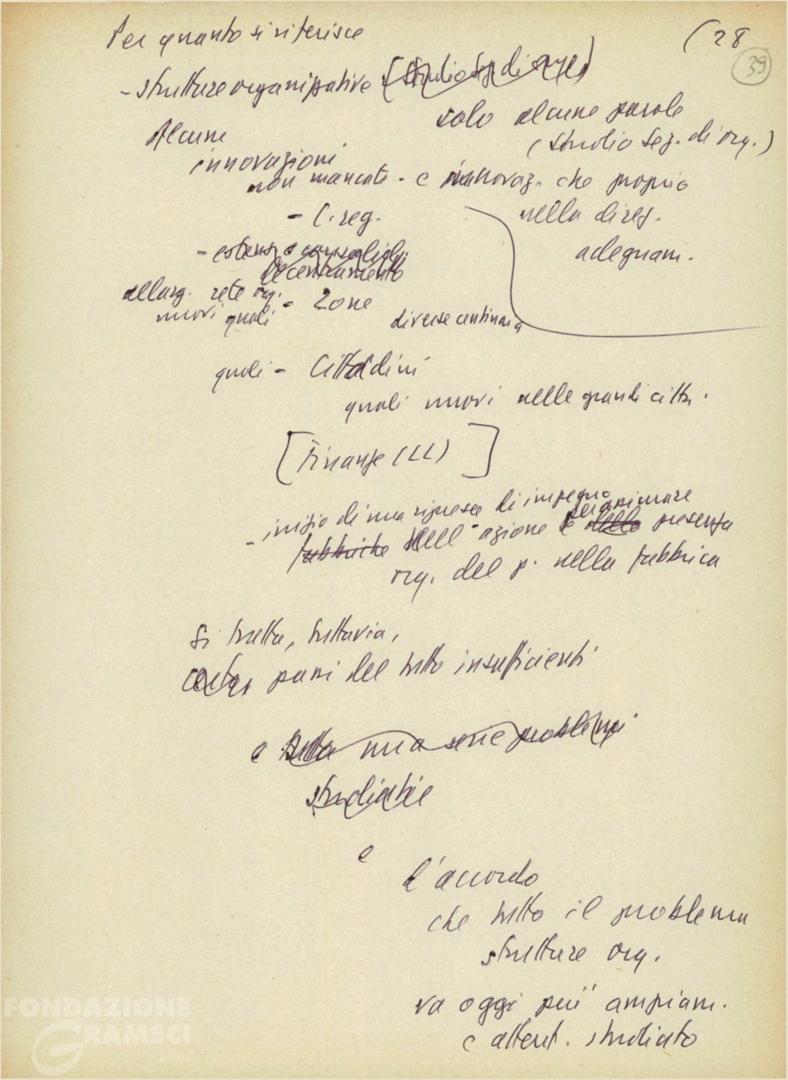 Per quanto si riferisce
(28
39
- strutture organizzative (studio Sez. di org.)
solo alcune parole
(studio Sez. di org.)
Alcune
innovazioni
non mancate - e innovaz. che proprio
- C. reg.
nella direz.
adeguam.
- estens. e
decentramento
allarg. rete org.
- Zone
nuovi quali
diverse centinaia
quali - Cittadini
quali nuovi nelle grandi città.
[Finanze (LL)]
- inizio di una ripresa di impegno
per assicurare
fabbriche dell'azione e della presenza
org. del p. nella fabbrica
Si tratta, tuttavia,
passi del tutto insufficienti
e tutta una serie problemi
studiare
e
d'accordo
che tutto il problema
strutture org.
va oggi più ampiam.
e attent. studiato
FONDAZIONE
GRAMSCI
online